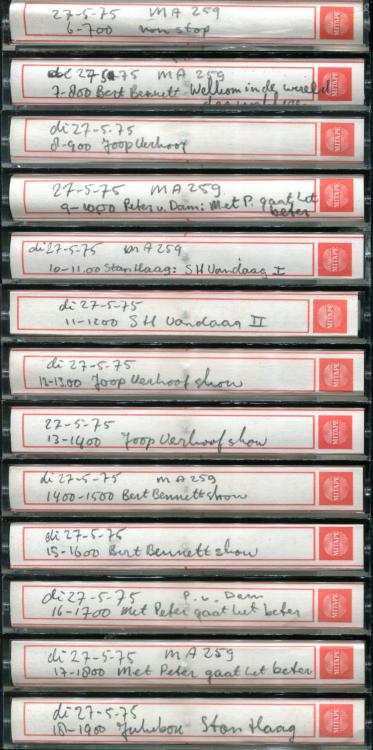 27-5-75 MA 259
6-700 non stop
MITAPE
di 27-5-75 MA 259
7-800 Bert Bennett Welkom in de wereld
MITAPE
di 27-5-75
8-900 Joop Verhoof
MITAPE
27-5-75 MA 259
9-1000 Peter v. Dam: Met P. gaat het
beter
MITAPE
di 27-5-75 MA 259
10-11.00 Stan Haag: SH Vandaag I
MITAPE
di 27-5-75
11-1200 SH Vandaag II
MITAPE
di 27-5-75
12-13.00 Joop Verhoof show
MITAPE
27-5-75
13-1400 Joop Verhoof show
MITAPE
di 27-5-75 MA 259
1400-1500 Bert Bennett show
MITAPE
di 27-5-75
15-1600 Bert Bennett show
MITAPE
di 27-5-75 P. v. Dam
16-1700 Met Peter gaat het beter
MITAPE
di 27-5-75 MA 259
17-1800 Met Peter gaat het beter
MITAPE
di 27-5-75
18-1900 Jukebox Stan Haag
MITAPE